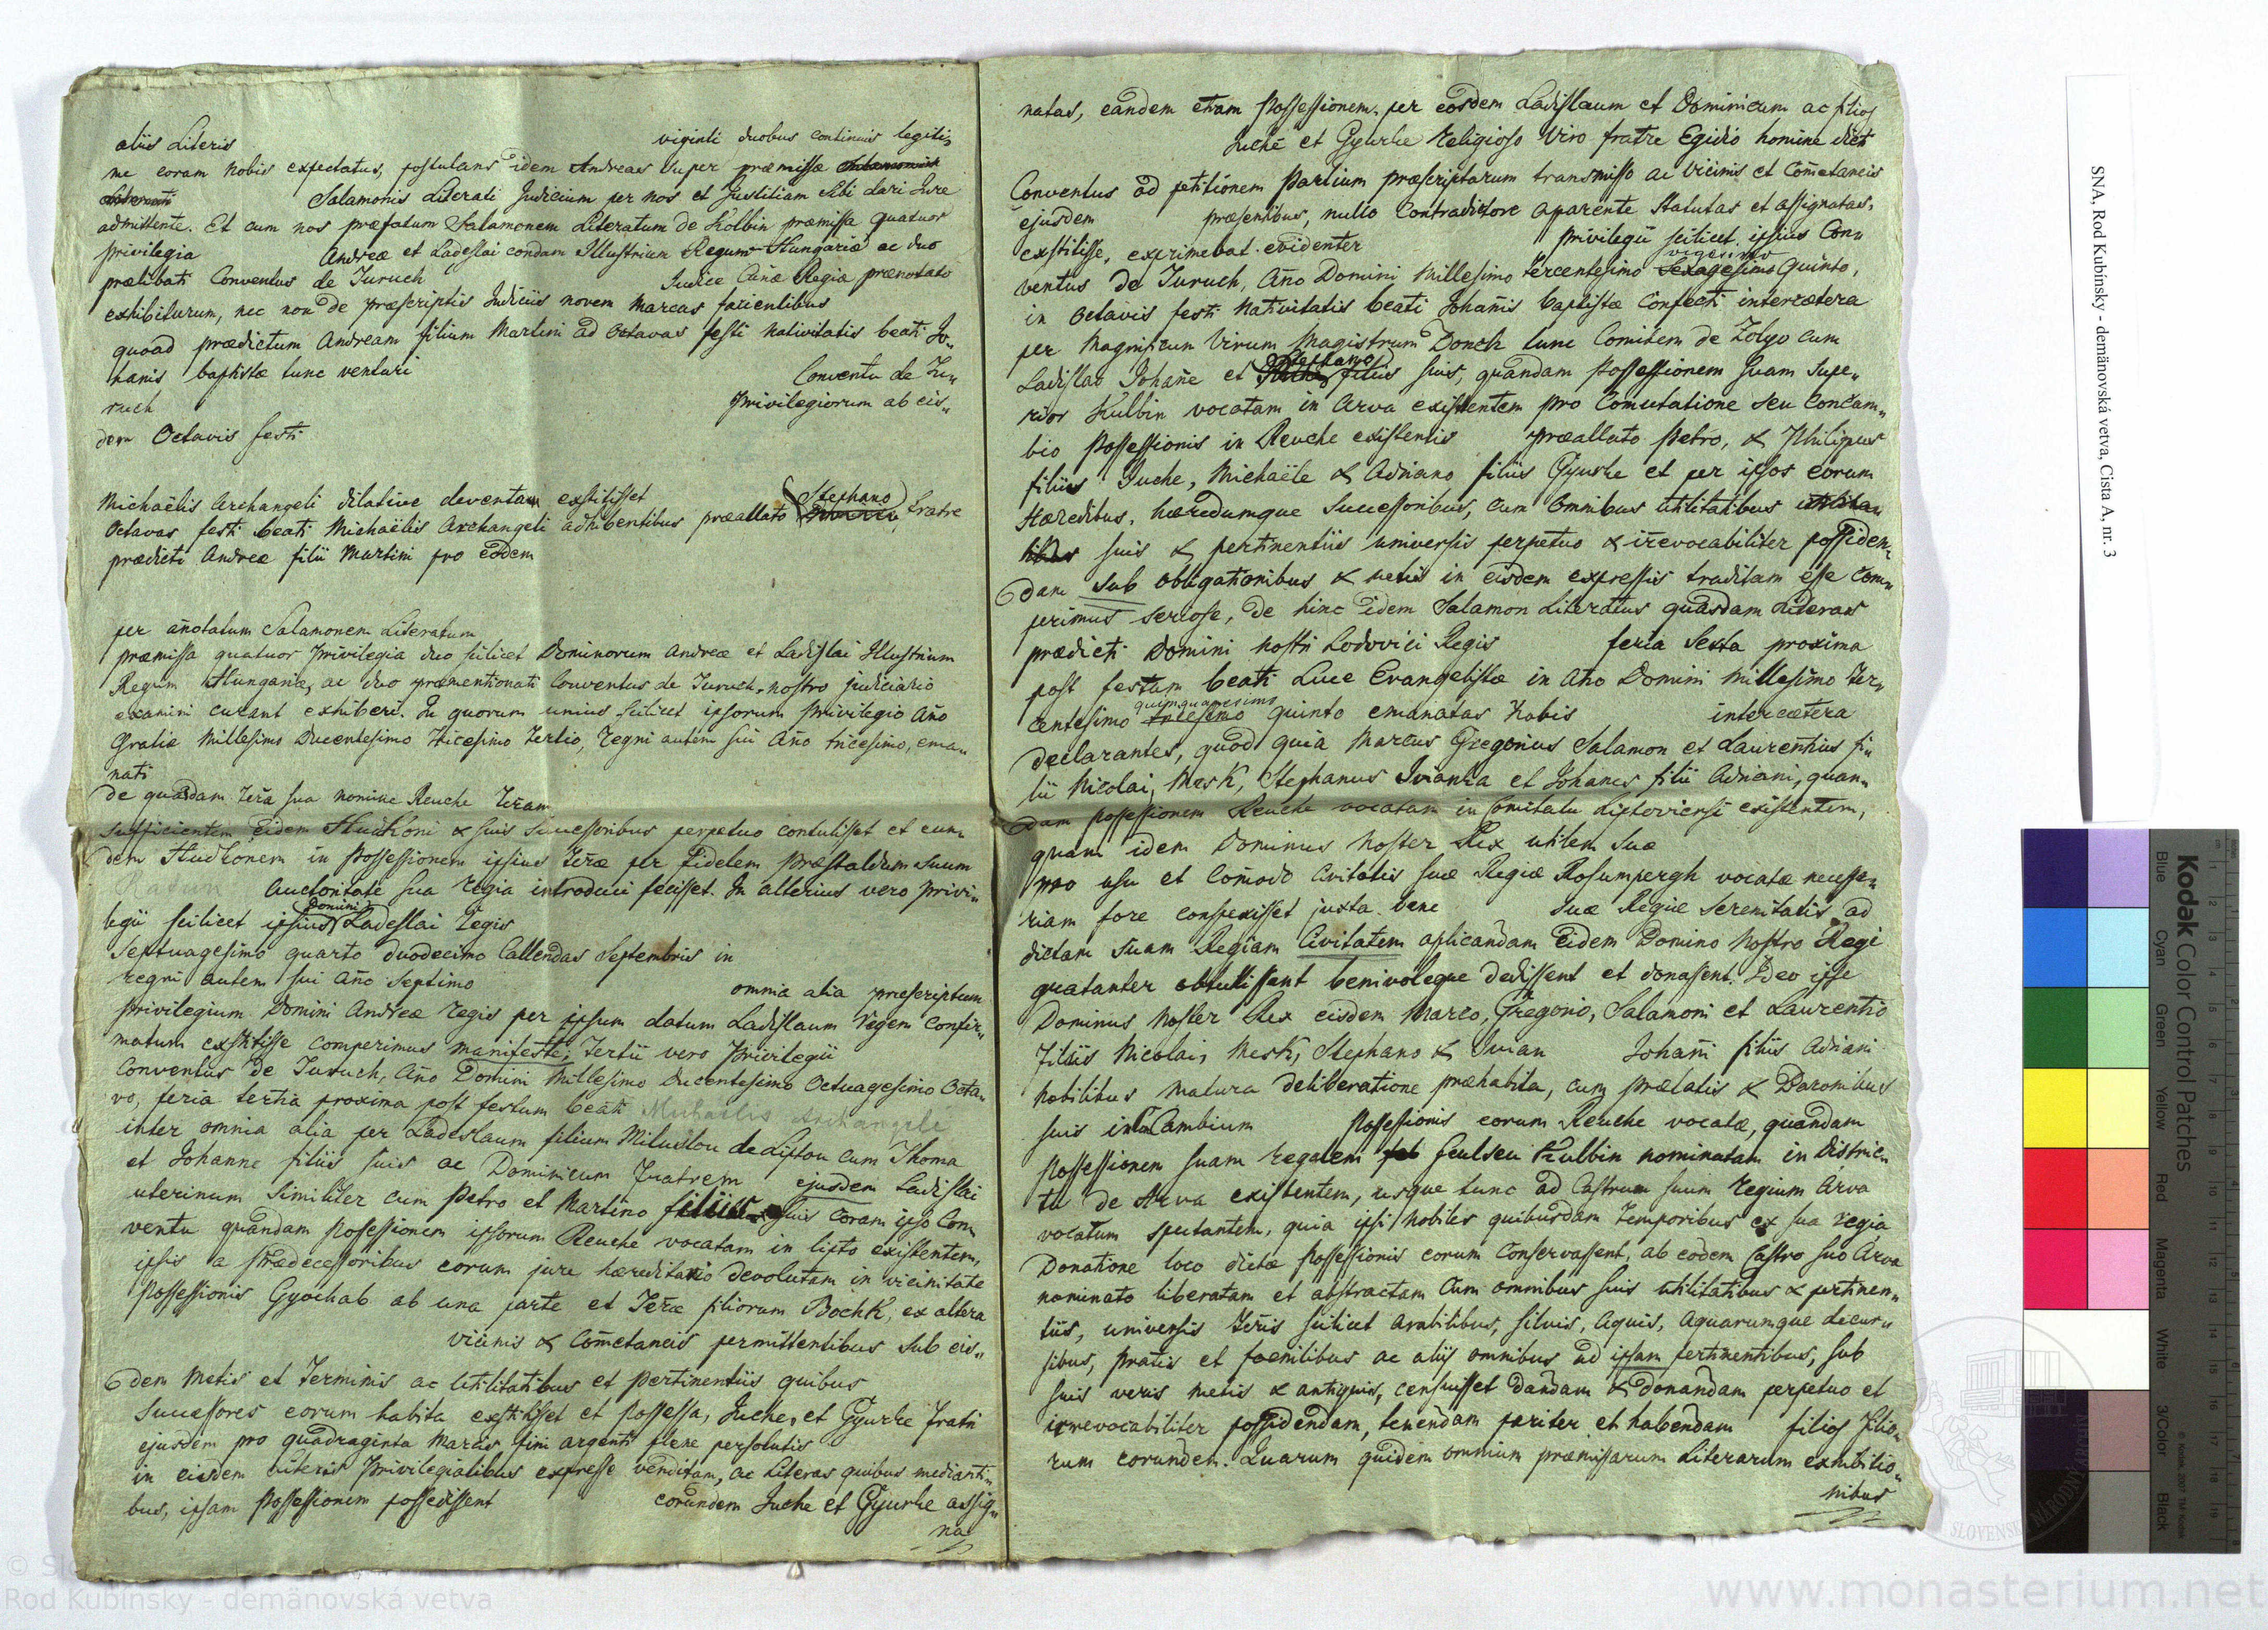 aliis Literis viginti duobus continuis legiti„
me coram nobis expectatus, postulans idem Andreas super præmissæ
Salamonis Literati Judicium per nos et Justitiam sibi dari Jure
admittente. Et cum nos præfatum Salamonem Literatum de Kolbin præmissa quatuor
privilegia Andreæ et Ladeslai condam Illustrium Regum Hungariæ ac duo
prælibati Conventus de Turuch Judice Curiæ Regiæ prænotato
exhibiturum, nec non de præscriptis Judiciis novem marcas facientibus
quoad prædictum Andream filium Martini ad octavas festi nativitatis beati Jo„
hanis baptistæ tunc venturi Conventu de Tu„
ruch Privilegiorum ab eis„
dem Octavis festi
Michaëlis Archangeli dilative deventam exstitisset
Octavas festi beati Michaëlis Archangeli adhibentibus præallato (Stephano) fratre
prædicti Andreæ filii Martini pro eodem
per añotatum Salamonem Literatum
præmissa quatuor Privilegia duo scilicet Dominorum Andreæ et Ladislai Illustrium
Regum Hungariæ, ac duo præmentionati Conventus de Turuch, nostro judiciario
examini curant exhiberi. In quorum unius scilicet ipsorum Privilegio Año
Gratiæ Millesimo Ducentesimo Tricesimo Tertio, Regni autem sui Año tricesimo, ema„
nati
de quadam Terra sua nomine Reuche Terram
sufficientem eidem Hudkoni & suis Successoribus perpetuo contulisset et eun„
dem Hudkonem in Possessionem ipsius Terræ per fidelem Præstaldum suum
Ratun Auctoritate sua regia introduci fecisset. In alterius vero privi„
legii scilicet ipsius (Domini) Ladeslai Regis
Septuagesimo quarto duodecimo Callendas Septembris in
regni autem sui Año Septimo omnia alia præscriptum
Privilegium Domini Andreæ Regis per ipsum datum Ladislaum Regem Confir„
matum exstitisse comperimus manifeste, Tertii vero Privilegii
Conventus de Turuch, Año Domini Millesimo Ducentesimo Octuagesimo Octa„
vo, feria tertia proxima post festum beati Michaelis Archangeli
inter omnia alia per Ladeslaum filium Miluslou de Liptou cum Thoma
et Johanne filiis suis ac Dominicum Fratrem ejusdem Ladislai
uterinum Similiter cum Petro et Martino filiis suis Coram ipso Con„
ventu quandam Possessionem ipsorum Reuche vocatam in lipto existentem,
ipsis a Prædecessoribus eorum jure hæreditario devolutam in vicinitate
Possessionis Gyochab ab una parte et Terræ filiorum Bochk, ex altera
vicinis & Cometaneis permittentibus sub eis„
dem Metis et Terminis ac Utilitatibus et Pertinentiis quibus
Successores eorum habita exstitisset et Possessa, Juche, et Gyurke Fratri
ejusdem pro quadraginta Marcis fini argenti plene persolutis
in eisdem Literis Privilegialibus expresse venditam, ac Literas quibus mediarti„
bus, ipsam Possessionem possedissent eorundem Juche et Gyurke assig„
na
natas, eandem etiam Possessionem per eosdem Ladislaum et Dominicum ac filios
Juche et Gyurke Religioso Viro fratre Egidio homine dicti
Conventus ad petitionem Partium præscriptarum transmisso ac Vicinis et Cometaneis
ejusdem præsentibus, nullo Contradictore aparente Statutas et assignatas,
exstitisse, exprimebat evidenter Privilegii scilicet ipsius Con„
ventus de Turuch, Año Domini Millesimo Tercentesimo vigesimo Sexagesimo Quinto,
in Octavis festi Nativitatis beati Johañis baptistæ Confecti intercætera
per Magnificum Virum Magistrum Donch tunc Comitem de Zolyo cum
Ladislao Johañe et Stephano filiis suis, quandam Possessionem Suam Supe„
rior Kulbin vocatam in Arva existentem pro Comutatione seu Concam„
bio Possessionis in Reuche existentis præallato Petro, & Philipus
filiis Juche, Michaële & Adriano filiis Gyurke et per ipsos eorum
Hæredibus, hæredumque Successoribus, cum Omnibus Utilitatibus
suis & pertinentiis universis perpetuo & irevocabiliter possiden„
dam sub obligationibus & metis in eisdem expressis traditam esse Com„
perimus seriose, de hinc idem Salamon Literatus quasdam Literas
prædicti Domini Nostri Lodovici Regis feria Sexta proxima
post festum beati Luce Evangelistæ in Año Domini Millesimo Ter„
centesimo quinquagesimo quinto emanatas Nobis intercætera
declarantes, quod quia Marcus Gregorius Salamon et Laurentius fi„
lii Nicolai, Mesk, Stephanus Ivanka et Johanes filii Adriani, quan„
dam possessionem Reuche vocatam in Comitatu Liptoviensi existentem,
quam idem Dominus Noster Rex utilem Suæ
pro usu et Comodo Civitatis suæ Regiæ Rosumpergh vocatæ necessa„
riam fore conspexisset juxta bene Suæ Regiæ Serenitatis ad
dictam suam Regiam Civitatem aplicandam Eidem Domino Nostro Regi
gratanter obtulissent benivoleque dedissent et donassent. Ideo ipse
Dominus Noster Rex eisdem Marco, Gregorio, Salamoni et Laurentio
Filiis Nicolai, Mesk, Stephano & Iwan Johañi filiis Adriani
Nobilibus matura deliberatione præhabita, cum Prælatis & Baronibus
suis in Cambium Possessionis eorum Reuche vocatæ, quandam
Possessionem suam regalem Feulseu Kulbin nominatam in Distric„
tu de Arva existentem, usque tunc ad Castrum suum Regium Arva
vocatum spectantem, quia ipsi Nobiles quibusdam Temporibus ex sua regia
Donatione loco dictæ Possessionis eorum Conservassent, ab eodem Castro suo Arva
nominato liberatam et abstractam Cum omnibus suis utilitatibus & pertinen„
tiis, universis Terris scilicet Arabilibus, Silvis, Aquis, Aquarumque decur„
sibus, Pratis et foenilibus ac aliis omnibus ad ipsam pertinentibus, sub
suis veris metis & antiquis, censuisset dandam & Donandam perpetuo et
irrevocabiliter possidendam, tenendam pariter et habendam filios Filio„
rum eorundem. Quarum quidem omnium præmissarum Literarum exhibitio„
nibus
SNA, Rod Kubínsky - demänovská vetva, Cista A, nr. 3
Kodak Color Control Patches
Blue Cyan Green Yellow Red Magenta White 3/Color Black
Rod Kubínsky - demänovská vetva
www.monasterium.net